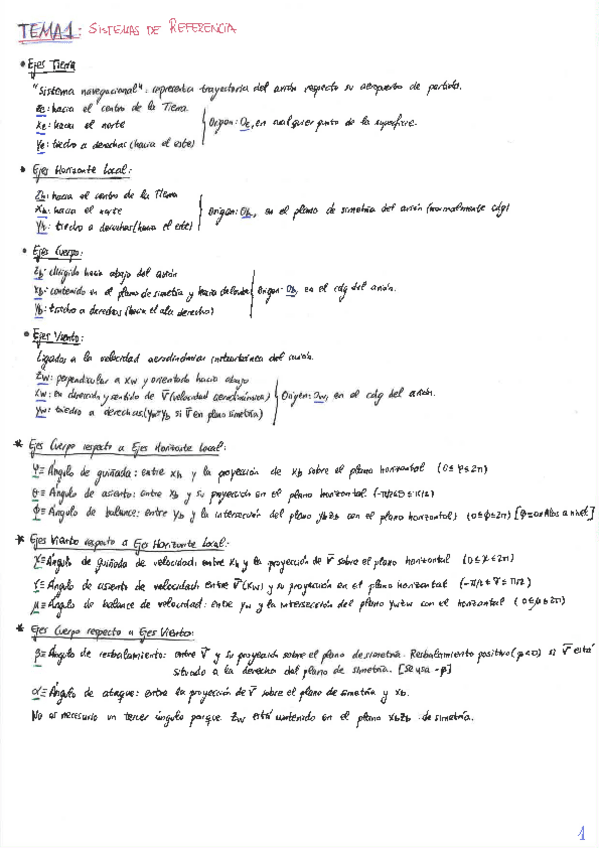 TEMA 1: SISTEMAS DE REFERENCIA
• Ejes Tierra
"Sistema navegacional": representa trayectoria del avión respecto su aeropuerto de partida.
ze: hacia el centro de la Tierra
xe: hacia el norte
Origen: Oe, en cualquier punto de la superficie.
ye: triedro a derechas (hacia el este)
• Ejes Horizonte Local:
zh: hacia el centro de la Tierra
xh: hacia el norte
Origen: Oh, en el plano de simetría del avión (normalmente cdg)
yh: triedro a derechas (hacia el este)
• Ejes Cuerpo:
zb: dirigido hacia abajo del avión
xb: contenido en el plano de simetría y hacia delante
Origen: Ob, en el cdg del avión.
yb: triedro a derechas (hacia el ala derecha)
• Ejes Viento:
Ligados a la velocidad aerodinámica instantánea del avión.
zw: perpendicular a xw y orientado hacia abajo
xw: en dirección y sentido de V̄ (velocidad aerodinámica)
Origen: Ow, en el cdg del avión.
yw: triedro a derechas (yw≡yb si V̄ en plano simetría)
* Ejes Cuerpo respecto a Ejes Horizonte Local:
ψ≡ Ángulo de guiñada: entre xh y la proyección de xb sobre el plano horizontal (0≤ψ≤2π)
θ≡ Ángulo de asiento: entre xb y su proyección en el plano horizontal (-π/2≤θ≤π/2)
Φ≡ Ángulo de balance: entre yb y la intersección del plano ybzb con el plano horizontal (0≤Φ≤2π) [Φ=0≡Alas a nivel]
* Ejes Viento respecto a Ejes Horizonte Local:
χ≡ Ángulo de guiñada de velocidad: entre xh y la proyección de V̄ sobre el plano horizontal (0≤χ≤2π)
γ≡ Ángulo de asiento de velocidad: entre V̄(xw) y su proyección en el plano horizontal (-π/2≤γ≤π/2)
μ≡ Ángulo de balance de velocidad: entre yw y la intersección del plano ywzw con el horizontal (0≤μ≤2π)
* Ejes Cuerpo respecto a Ejes Viento:
β≡ Ángulo de resbalamiento: entre V̄ y su proyección sobre el plano de simetría. Resbalamiento positivo (β<0) si V̄ está
situado a la derecha del plano de simetría. [se usa -β]
α≡ Ángulo de ataque: entre la proyección de V̄ sobre el plano de simetría y xb.
No es necesario un tercer ángulo porque zw está contenido en el plano xbzb de simetría.
1